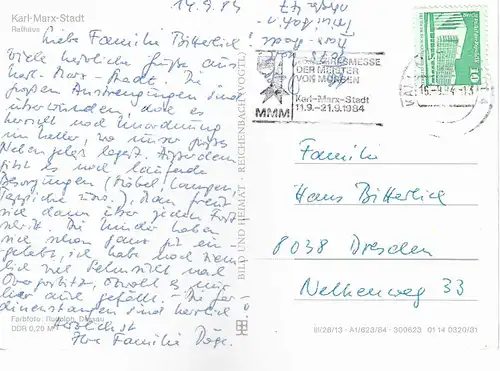 Karl-Marx-Stadt
Rathaus
14.9.84
Liebe Familie Bitterlich!
Viele herzliche Grüße aus
Karl-Marx-Stadt. Die
großen Anstrengungen sind
überwunden, doch es
herrscht noch Unordnung
im Keller, wo unser großes
Nebengelaß liegt. Außerdem
gibt es noch laufende
Besorgungen (Möbel, Lampen,
Teppiche usw.). Man freut
sich dann über jeden Fort-
schritt. Die Kinder haben
sich schon ganz gut ein-
gelebt, ich habe noch
Sehnsucht nach
obwohl es mir
hier auch gefällt. Die
sind herrlich.
Herzlichst
Ihre Familie
BEZIRKSMESSE
DER MEISTER
VON MORGEN
Karl-Marx-Stadt
11.9.-21.9.1984
MMM
10
Familie
Hans Bitterlich
8038 Dresden
Nelkenweg 33
BILD UND HEIMAT · REICHENBACH (VOGTL)
Farbfoto: Rudolph, Dessau
DDR 0,20 M
III/26/13 · A1/623/84 · 300623 01 14 0320/31